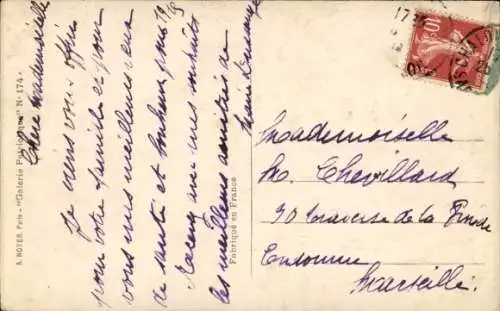 Chère Mademoiselle
Je viens vous offrir
pour votre famille et pour
vous mes meilleurs vœux
de santé et bonheur pour 1915
Recevez avec mes souhaits
les meilleures amitiés de
A. NOYER, Paris - "Galerie Patriotique" N° 174
Fabriqué en France
17
10
Mademoiselle
M. Chevillard
90 traverse de la
Endoume
Marseille.